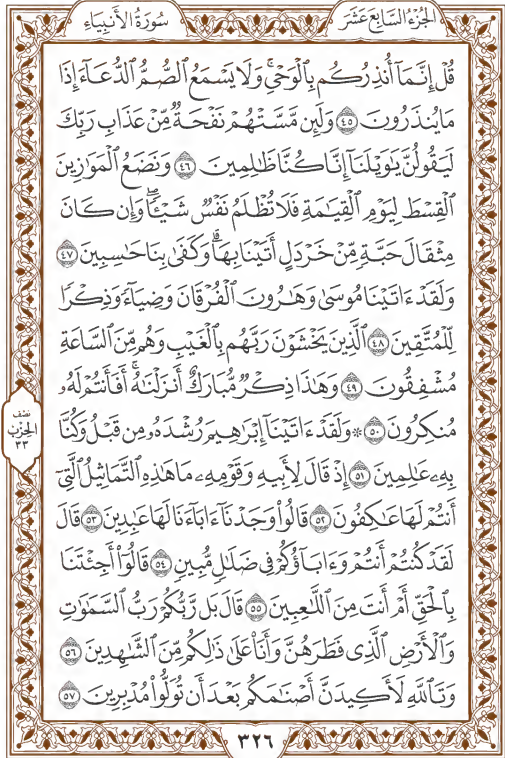 الجُزْءُ السَّابِعَ عَشَرَ
سُورَةُ الأَنبِيَاءِ
قُلۡ إِنَّمَآ أُنذِرُكُم بِٱلۡوَحۡيِۚ وَلَا يَسۡمَعُ ٱلصُّمُّ ٱلدُّعَآءَ إِذَا
مَا يُنذَرُونَ ٤٥ وَلَئِن مَّسَّتۡهُمۡ نَفۡحَةٞ مِّنۡ عَذَابِ رَبِّكَ
لَيَقُولُنَّ يَٰوَيۡلَنَآ إِنَّا كُنَّا ظَٰلِمِينَ ٤٦ وَنَضَعُ ٱلۡمَوَٰزِينَ
ٱلۡقِسۡطَ لِيَوۡمِ ٱلۡقِيَٰمَةِ فَلَا تُظۡلَمُ نَفۡسٞ شَيۡـٔٗاۖ وَإِن كَانَ
مِثۡقَالَ حَبَّةٖ مِّنۡ خَرۡدَلٍ أَتَيۡنَا بِهَاۗ وَكَفَىٰ بِنَا حَٰسِبِينَ ٤٧
وَلَقَدۡ ءَاتَيۡنَا مُوسَىٰ وَهَٰرُونَ ٱلۡفُرۡقَانَ وَضِيَآءٗ وَذِكۡرٗا
لِّلۡمُتَّقِينَ ٤٨ ٱلَّذِينَ يَخۡشَوۡنَ رَبَّهُم بِٱلۡغَيۡبِ وَهُم مِّنَ ٱلسَّاعَةِ
مُشۡفِقُونَ ٤٩ وَهَٰذَا ذِكۡرٞ مُّبَارَكٌ أَنزَلۡنَٰهُۚ أَفَأَنتُمۡ لَهُۥ
مُنكِرُونَ ٥٠ ۞ وَلَقَدۡ ءَاتَيۡنَآ إِبۡرَٰهِيمَ رُشۡدَهُۥ مِن قَبۡلُ وَكُنَّا
بِهِۦ عَٰلِمِينَ ٥١ إِذۡ قَالَ لِأَبِيهِ وَقَوۡمِهِۦ مَا هَٰذِهِ ٱلتَّمَاثِيلُ ٱلَّتِيٓ
أَنتُمۡ لَهَا عَٰكِفُونَ ٥٢ قَالُواْ وَجَدۡنَآ ءَابَآءَنَا لَهَا عَٰبِدِينَ ٥٣ قَالَ
لَقَدۡ كُنتُمۡ أَنتُمۡ وَءَابَآؤُكُمۡ فِي ضَلَٰلٖ مُّبِينٖ ٥٤ قَالُوٓاْ أَجِئۡتَنَا
بِٱلۡحَقِّ أَمۡ أَنتَ مِنَ ٱللَّٰعِبِينَ ٥٥ قَالَ بَل رَّبُّكُمۡ رَبُّ ٱلسَّمَٰوَٰتِ
وَٱلۡأَرۡضِ ٱلَّذِي فَطَرَهُنَّ وَأَنَا۠ عَلَىٰ ذَٰلِكُم مِّنَ ٱلشَّٰهِدِينَ ٥٦
وَتَٱللَّهِ لَأَكِيدَنَّ أَصۡنَٰمَكُم بَعۡدَ أَن تُوَلُّواْ مُدۡبِرِينَ ٥٧
نصف
الحزب
٣٣
٣٢٦